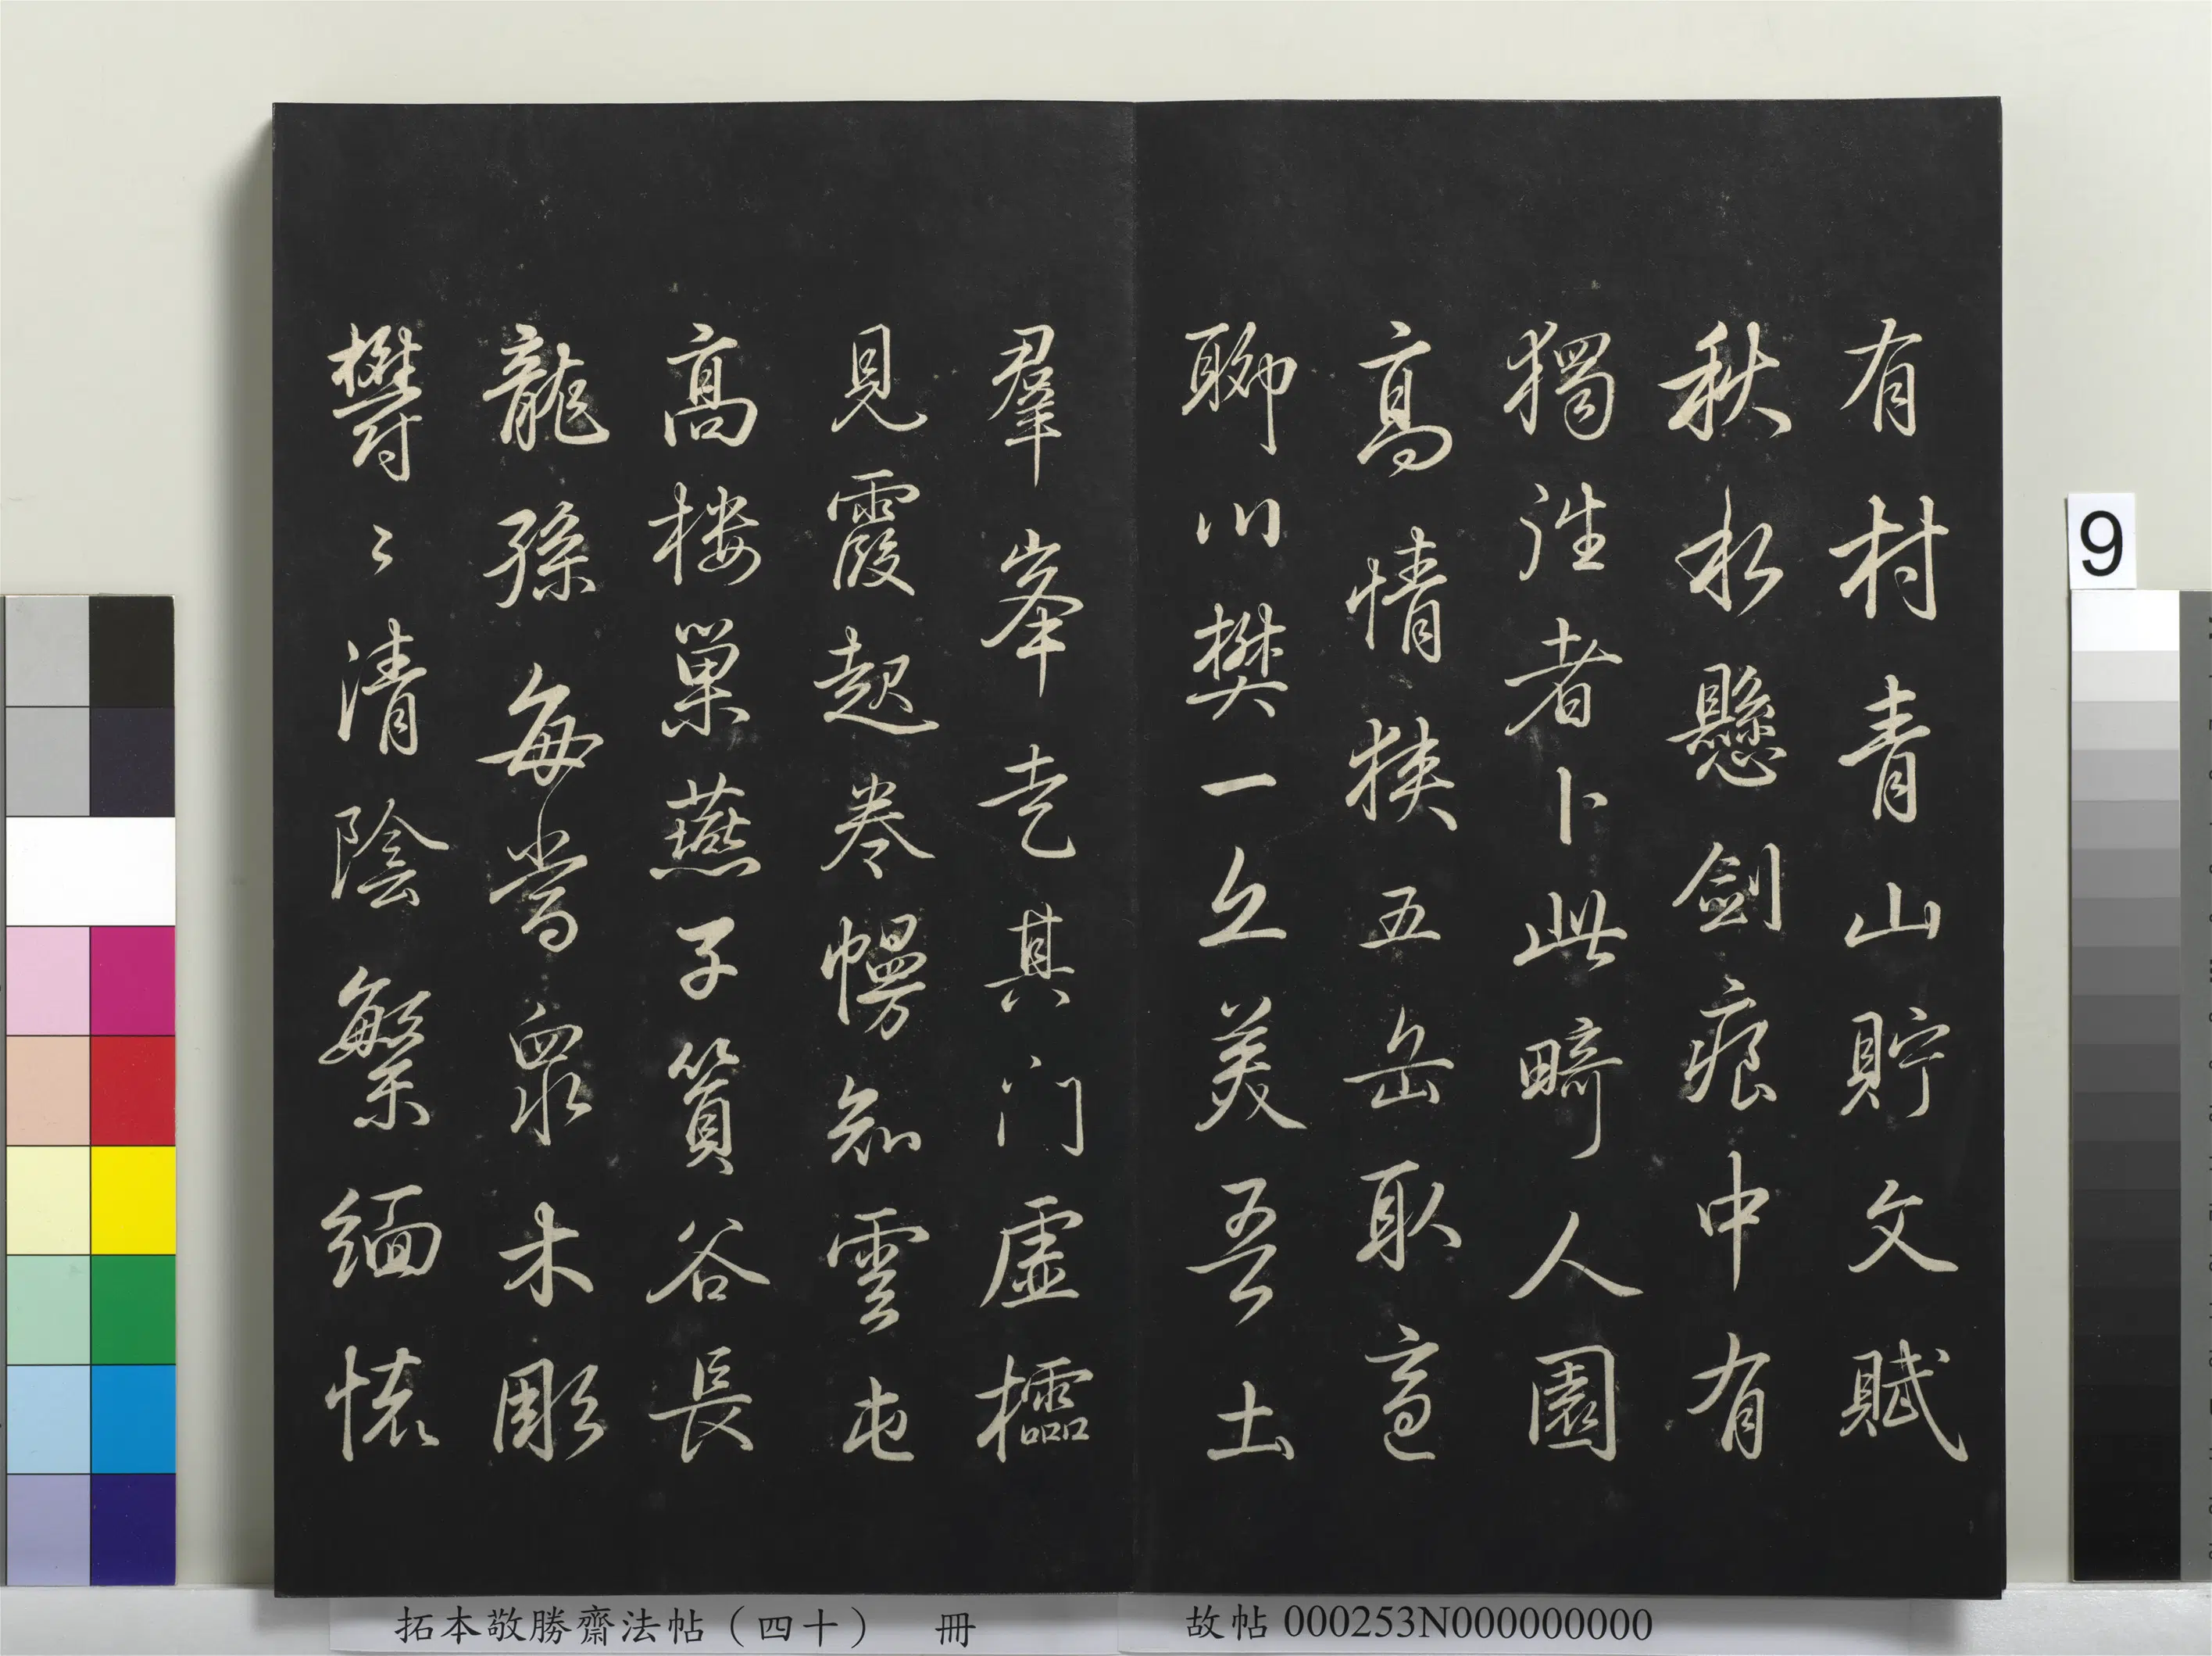 有村青山貯文賦
秋水懸劍痕中有
獨往者卜此畸人園
高情狹五岳取適
聊川樊一丘美吾土
羣峯走其門虛櫺
見霞起卷幔知雲屯
高樓巢燕子篔谷長
龍孫每當眾木彫
欝〻清陰繁緬懷
9
拓本敬勝齋法帖（四十） 冊
故帖000253N000000000